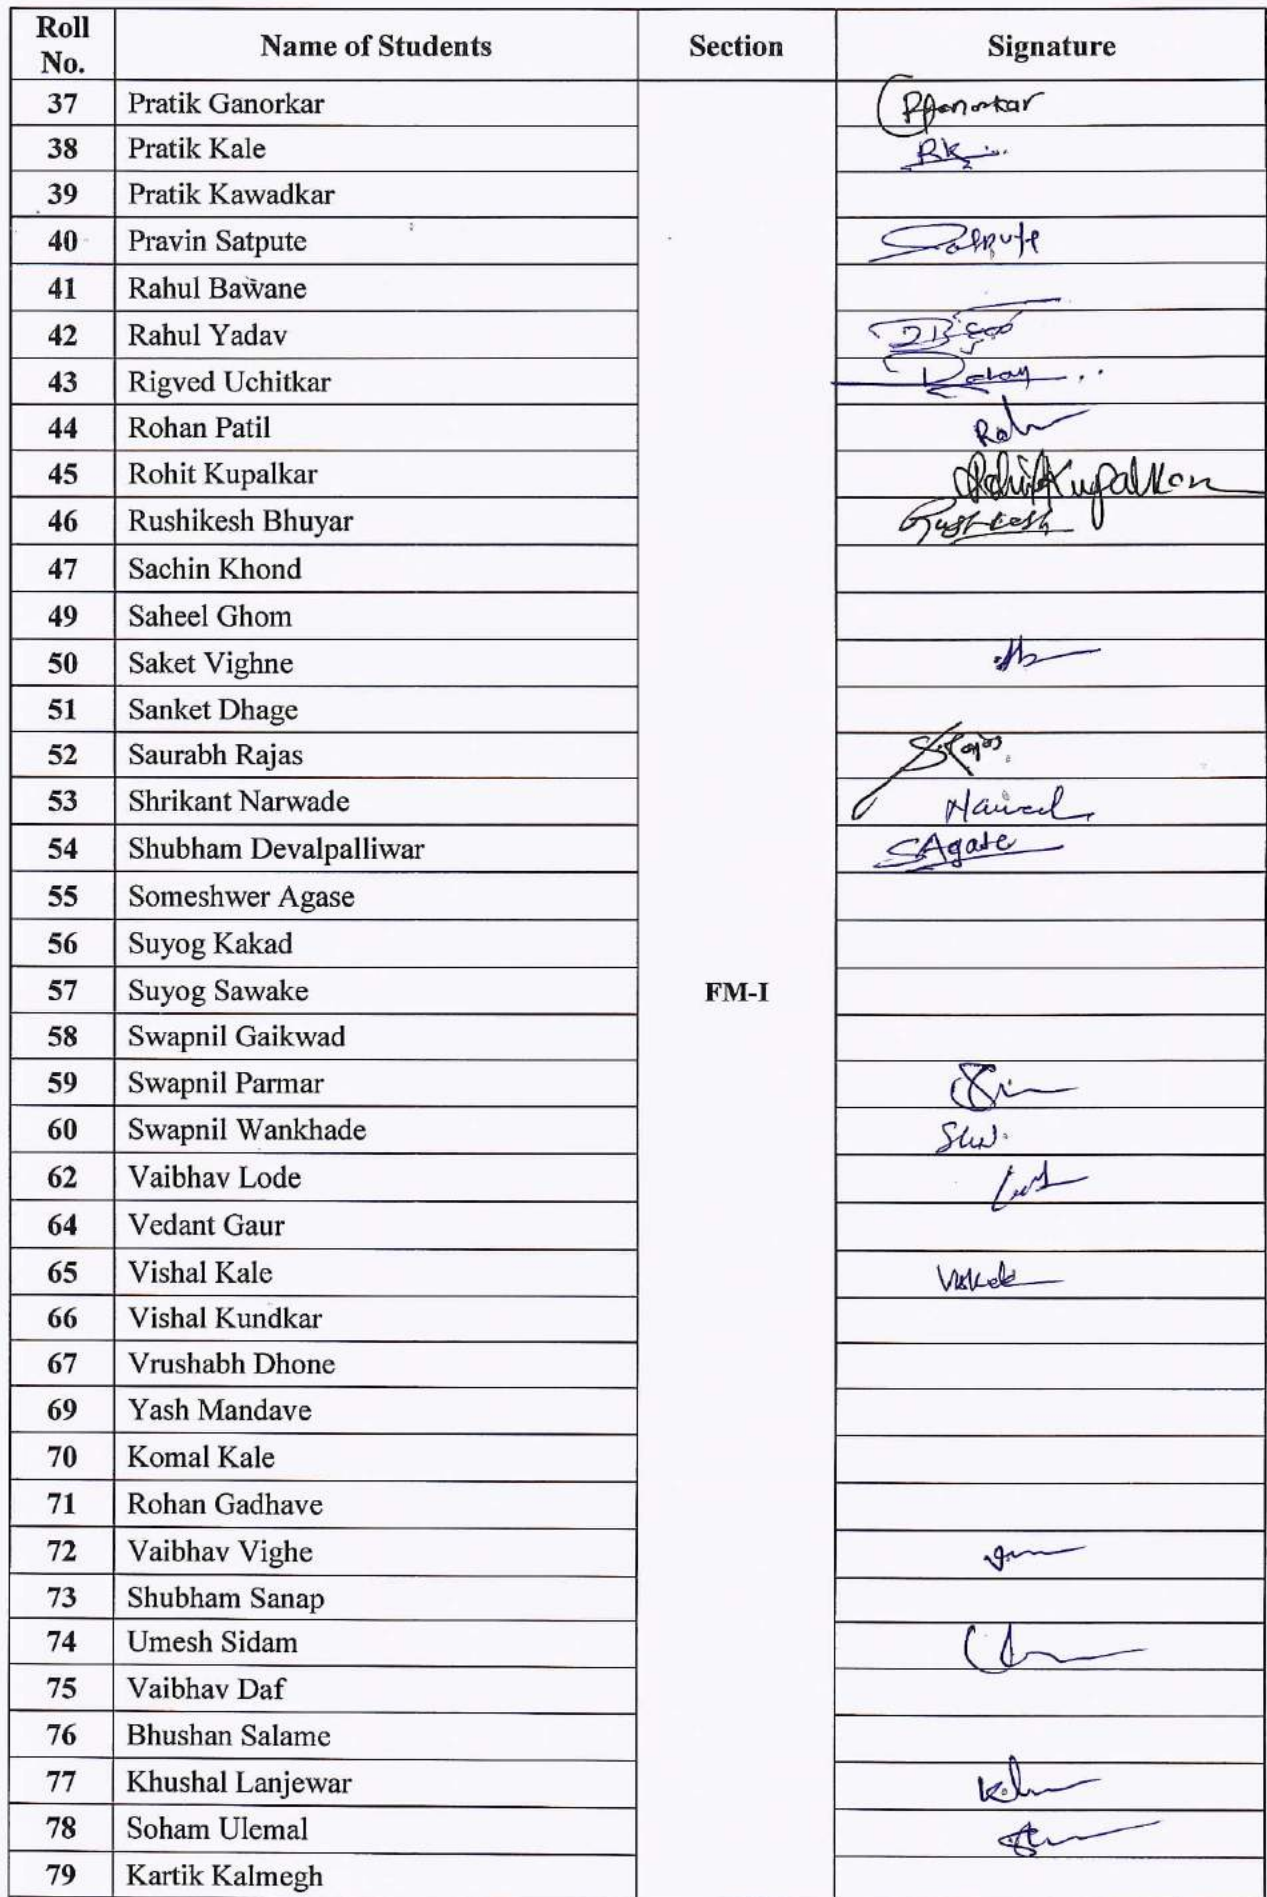 Roll No. Name of Students Section Signature
37 Pratik Ganorkar PGanorkar
38 Pratik Kale PK
39 Pratik Kawadkar
40 Pravin Satpute Satpute
41 Rahul Bawane
42 Rahul Yadav
43 Rigved Uchitkar
44 Rohan Patil
45 Rohit Kupalkar Rohit Kupalkar
46 Rushikesh Bhuyar Rushikesh
47 Sachin Khond
49 Saheel Ghom
50 Saket Vighne
51 Sanket Dhage
52 Saurabh Rajas SRajas
53 Shrikant Narwade
54 Shubham Devalpalliwar SAgase
55 Someshwer Agase
56 Suyog Kakad
57 Suyog Sawake FM-I
58 Swapnil Gaikwad
59 Swapnil Parmar
60 Swapnil Wankhade
62 Vaibhav Lode
64 Vedant Gaur
65 Vishal Kale
66 Vishal Kundkar
67 Vrushabh Dhone
69 Yash Mandave
70 Komal Kale
71 Rohan Gadhave
72 Vaibhav Vighe
73 Shubham Sanap
74 Umesh Sidam
75 Vaibhav Daf
76 Bhushan Salame
77 Khushal Lanjewar
78 Soham Ulemal
79 Kartik Kalmegh